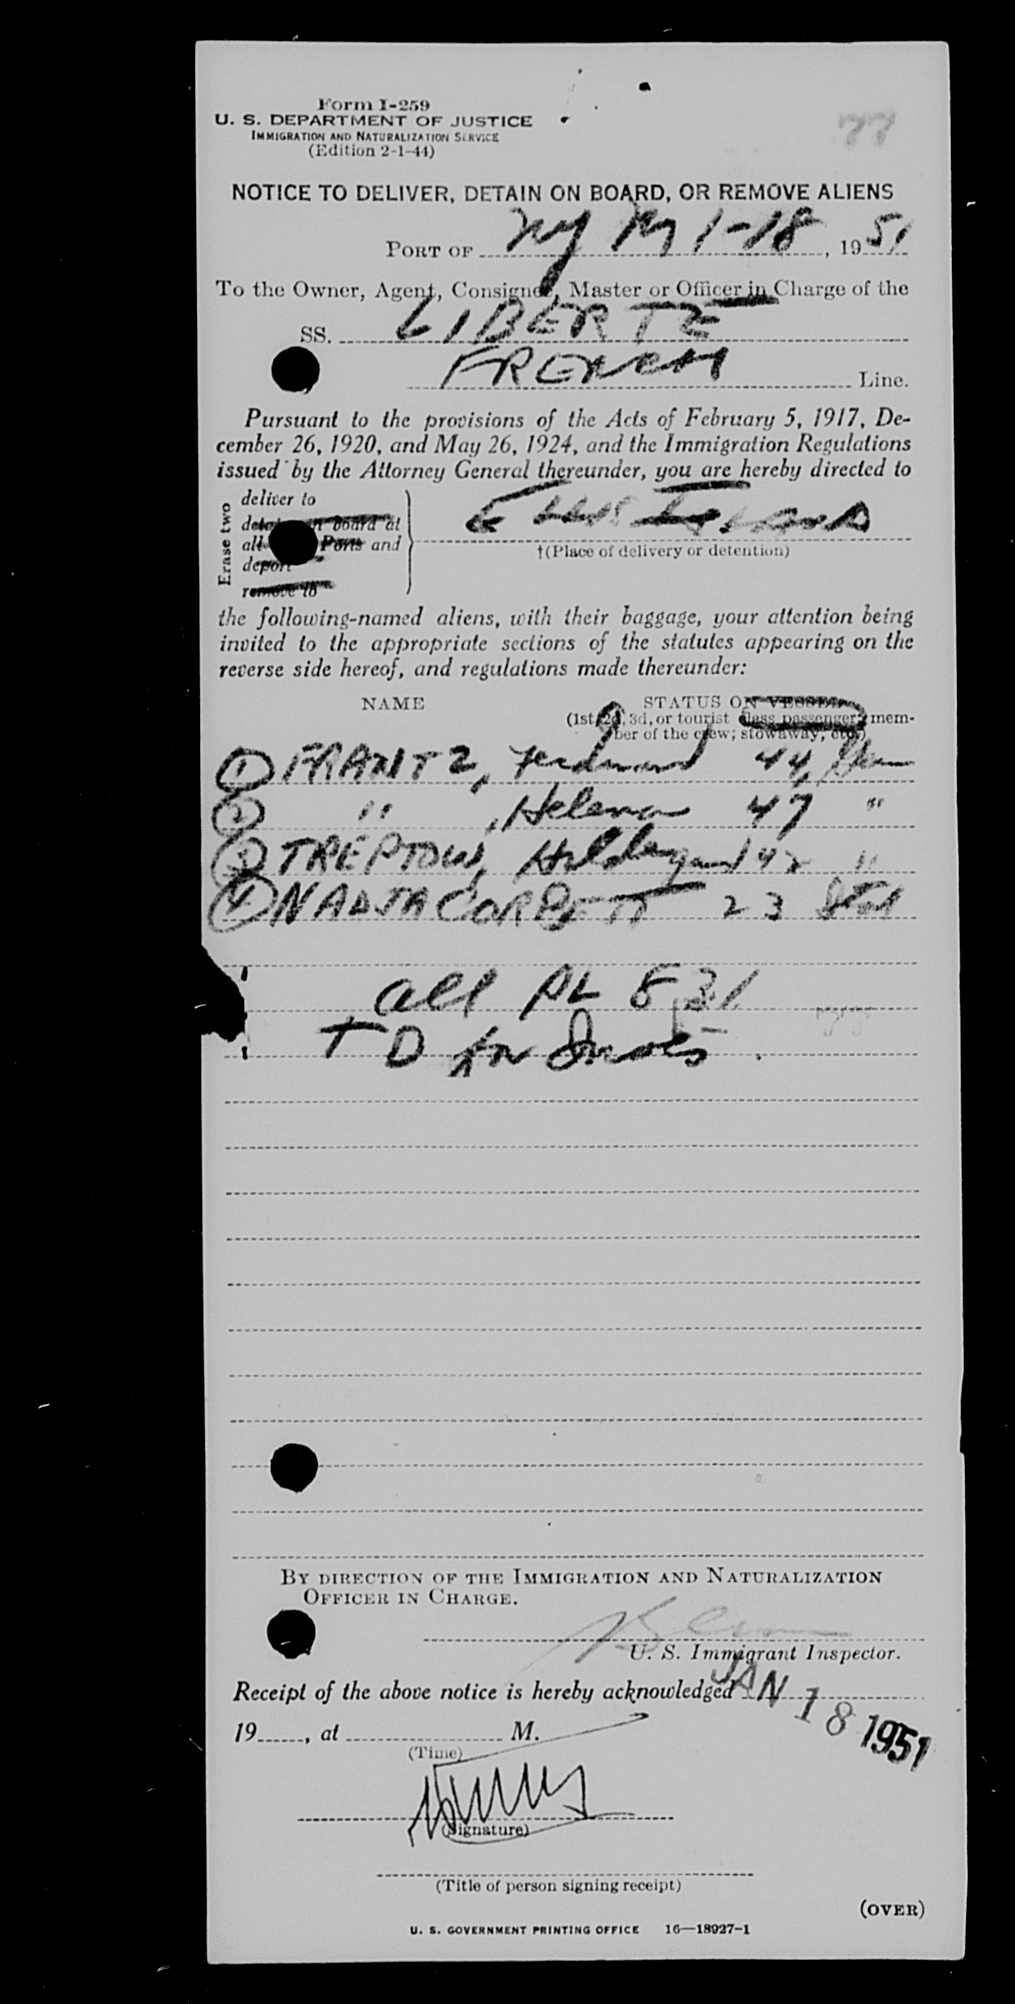 Form I-259
U. S. DEPARTMENT OF JUSTICE
IMMIGRATION AND NATURALIZATION SERVICE
(Edition 2-1-44)
77
NOTICE TO DELIVER, DETAIN ON BOARD, OR REMOVE ALIENS
PORT OF NY NY 1-18, 1951
To the Owner, Agent, Consignee, Master or Officer in Charge of the
SS. LIBERTE
FRENCH Line.
Pursuant to the provisions of the Acts of February 5, 1917, De-
cember 26, 1920, and May 26, 1924, and the Immigration Regulations
issued by the Attorney General thereunder, you are hereby directed to
Erase two
deliver to
detain on board at
all Ports and
deport
remove to
ELLIS ISLAND
†(Place of delivery or detention)
the following-named aliens, with their baggage, your attention being
invited to the appropriate sections of the statutes appearing on the
reverse side hereof, and regulations made thereunder:
NAME STATUS ON VESSEL
(1st, 2d, 3d, or tourist class passenger; mem-
ber of the crew; stowaway, etc.)
1 FRANTZ, Ferdinand 44
2 " , Helena 47 "
3 TREPTOW, Hildegard 42 "
4 NADJA CORBETT 23
all PL 831
TD for
BY DIRECTION OF THE IMMIGRATION AND NATURALIZATION
OFFICER IN CHARGE.
U. S. Immigrant Inspector.
Receipt of the above notice is hereby acknowledged JAN 18 1951
19 , at M.
(Time)
(Signature)
(Title of person signing receipt)
(OVER)
U. S. GOVERNMENT PRINTING OFFICE 16—18927-1